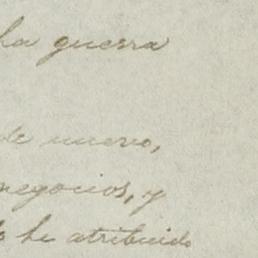 la guerra
de nuevo,
negocios, y
lo he atribuido